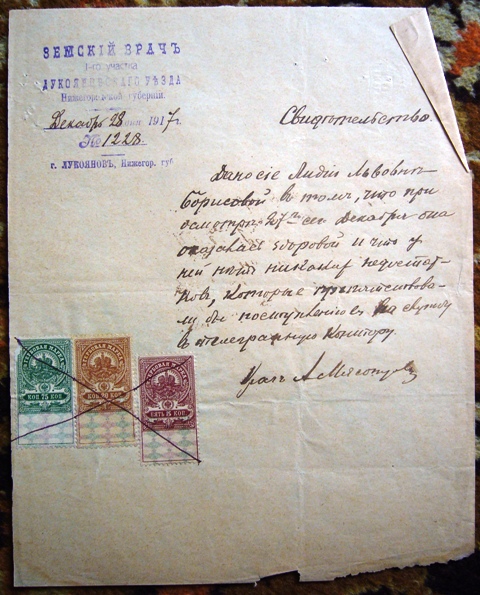 ЗЕМСКІЙ ВРАЧЪ
1-го участка
ЛУКОЯНОВСКАГО УѢЗДА
Нижегородской губерніи.
Декабрь 28 дня 1917 г.
№ 1228
г. ЛУКОЯНОВЪ, Нижегор. губ.
Свидѣтельство.
Дано сіе Лидіи Львовнѣ
Борисовой въ томъ, что при
осмотрѣ 27го сего Декабря она
оказалась здоровой и что у
ней нѣтъ никакихъ недостат-
ковъ, которые препятствова-
ли бы поступленію на службу
въ телеграфную контору.
Врачъ
ГЕРБОВАЯ МАРКА
КОП 75 КОП
ГЕРБОВАЯ МАРКА
КОП
ГЕРБОВАЯ МАРКА
ПЯТЬ 5 КОП